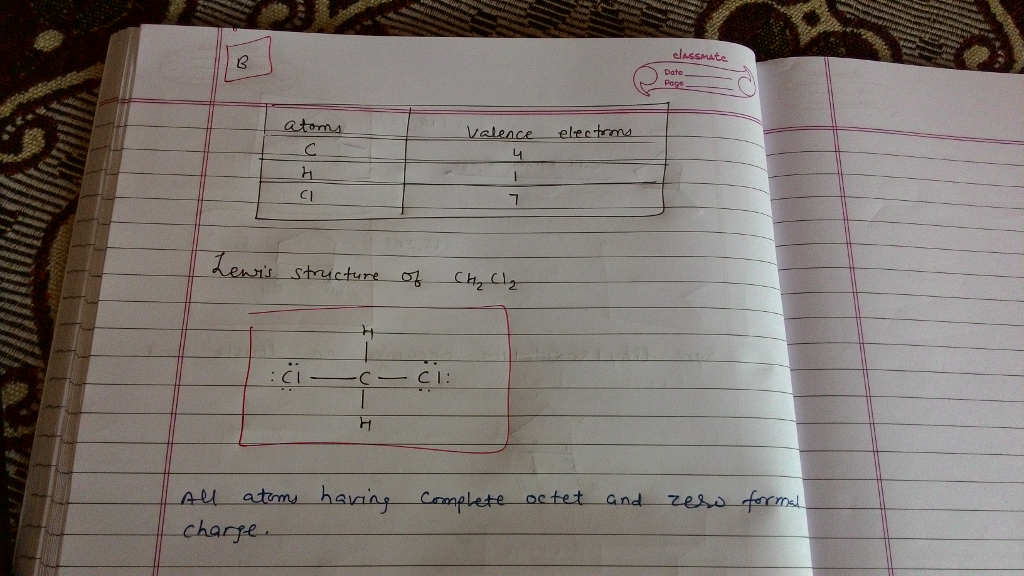 B
classmate
Date
Page
atoms Valence electrons
C 4
H 1
Cl 7
Lewis structure of CH₂Cl₂
H
|
:C̤̈l — C — C̤̈l:
|
H
All atoms having complete octet and zero formal
charge.